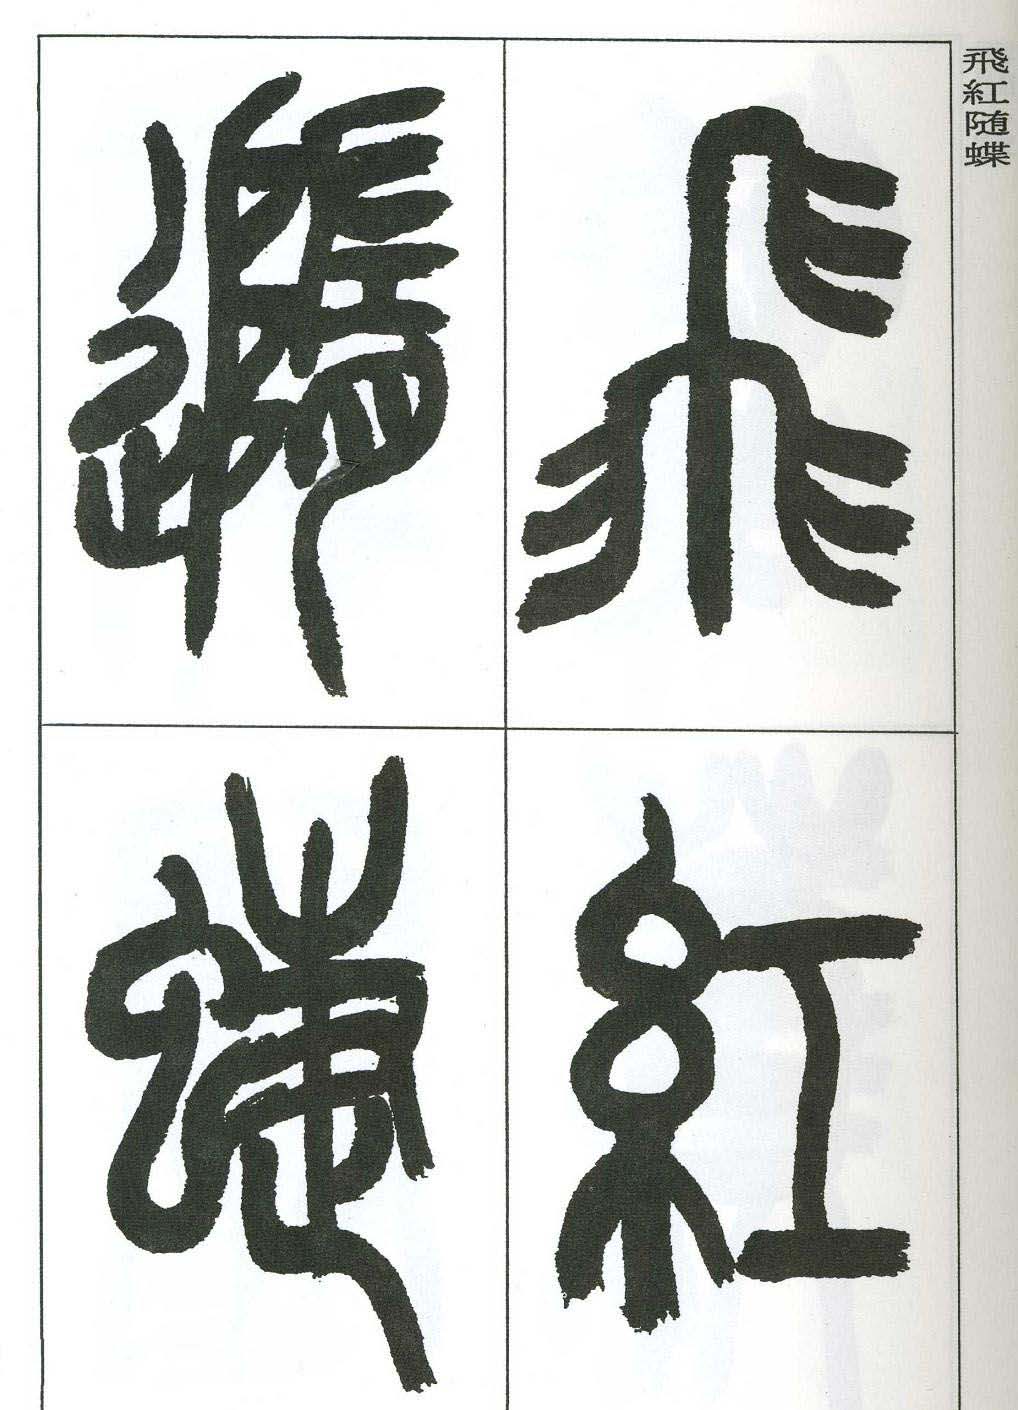 飛紅随蝶
飛紅
隨蝶